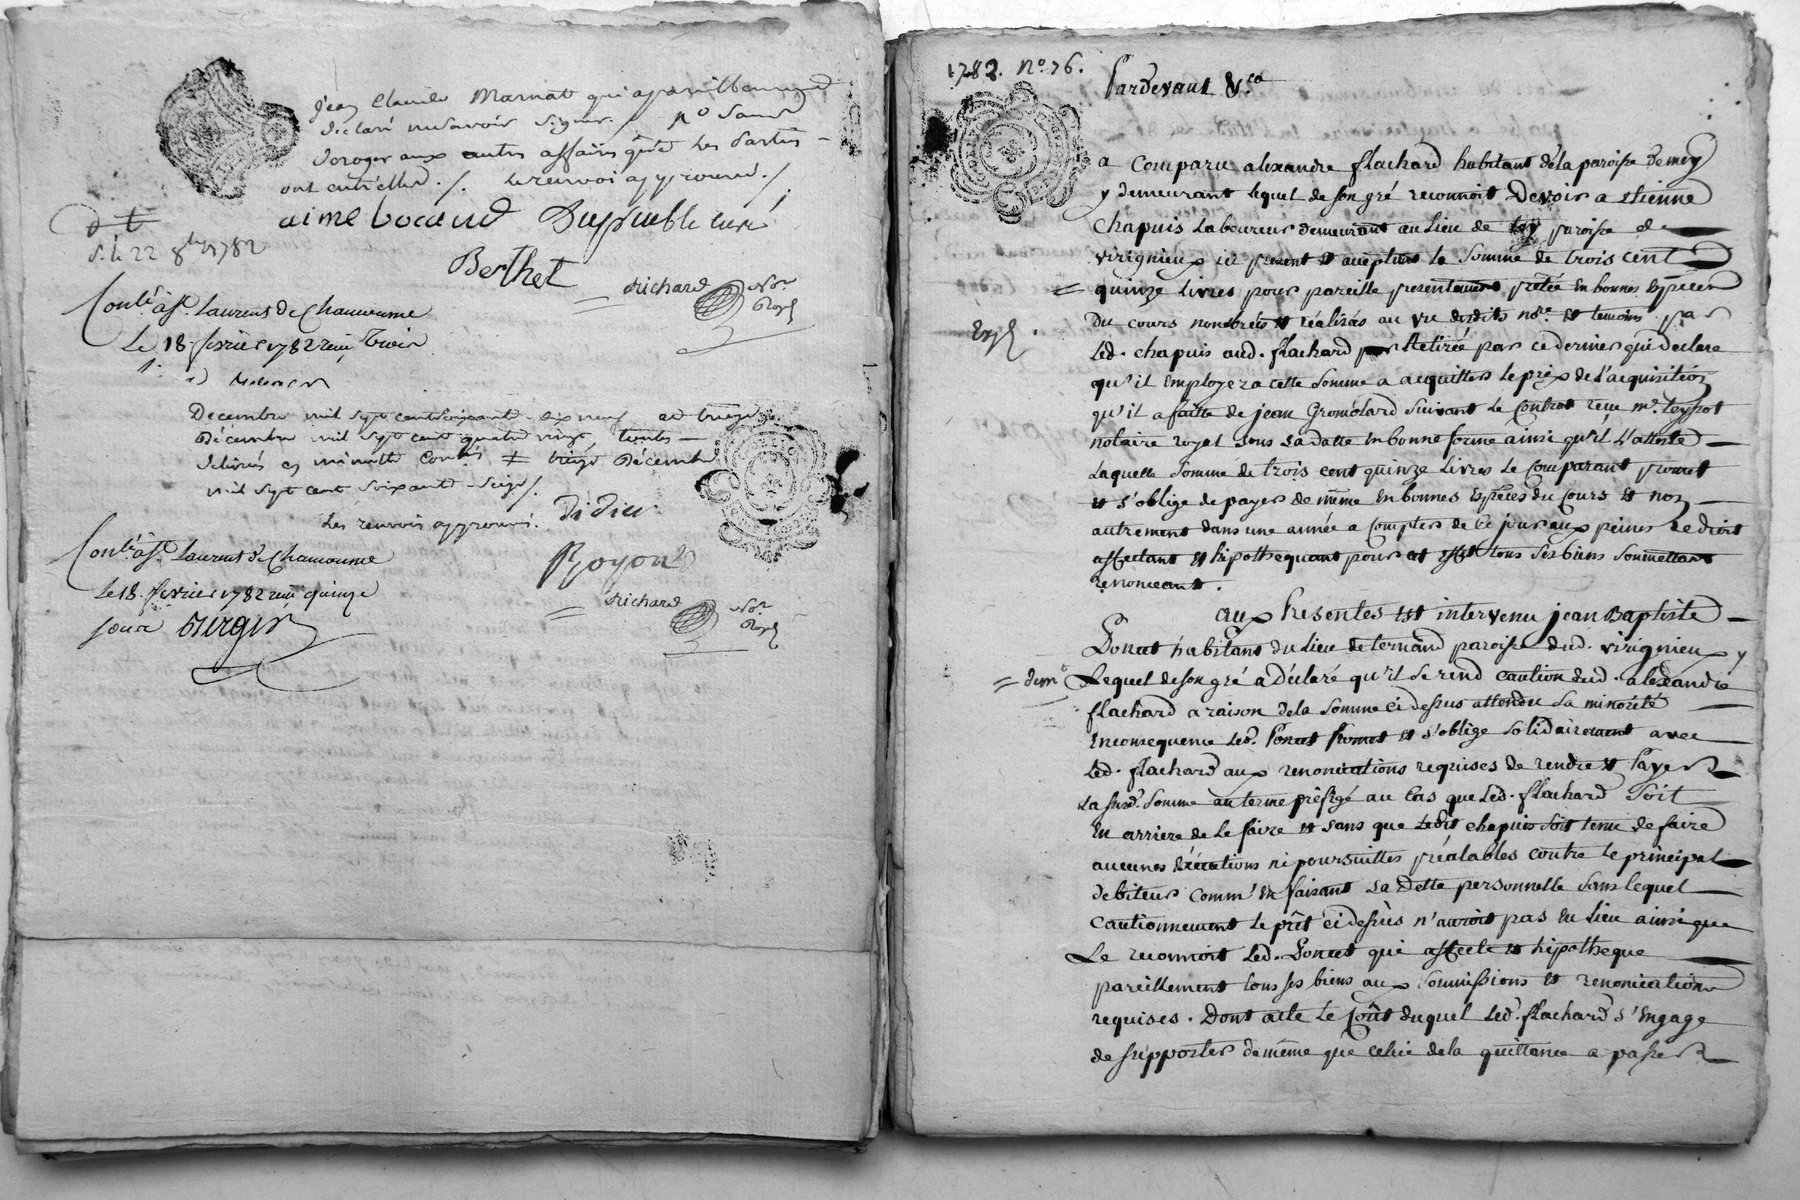 Jean Claude Marnat qui a pareillement
déclaré ne savoir signer. no sans
déroger aux autres affaires que les parties
ont entr'elles ./. le renvoi approuvé ./.
aimé Curé
Berthet Richard Nore
Royl
d t
s. le 22 8bre 1782
Conlé à St Laurens de Chamousse
Le 18 fevrier 1782 reçu Trois
Decembre mil sept cent soixante dix neuf
Décembre mil sept cent quatre vingt, toutes
delivrés en minutte ≠ treize Décembre
mil sept cent soixante seize /.
Les renvois approuvés. Didier
Conlé à St Laurens de Chamousse Royon
Le 18 fevrier 1782 reçu quinze Richard Nore
sous Royl
1782. No. 76.
Pardevant &ca
a Comparu alexandre flachard habitant de la paroisse de mey
y demeurant lequel de son gré reconnoit Devoir a etienne
Chapuis Laboureur demeurant au Lieu de paroisse de
virignieux ici present et acceptant la Somme de trois cent
= quinze Livres pour pareille presentement prêtée En bonnes Espéces
du cours nombrées et réalisés au vu desdits nore. et temoins par
Exp.
Led. chapuis aud. flachard Retirée par ce dernier qui déclare
qu'il Employera cette Somme a acquitter le prix de l'acquisition
qu'il a faitte de jean Gromolard Suivant Le Contrat recu me. teyrot
notaire royal sous sa datte En bonne forme ainsi qu'il L'atteste
Laquelle Somme de trois cent quinze Livres Le Comparant promet
et s'oblige de payer de même En bonnes Espéces du Cours et non
autrement dans une année a Compter de ce jour aux peines de droit
affectant et hipothequant pour cet effet tous Ses biens Sommettant
renonceant.
aux Presentes est intervenu jean Baptiste
Poncet habitant du Lieu de ternand paroisse dud. virignieux y
= demt Lequel de son gré a Déclaré qu'il Se rend caution dud. alexandre
flachard a raison de la Somme ci dessus attendu Sa minorité
En consequence Led. Poncet promet et s'oblige Solidairement avec
Led. flachard aux renonciations requises de rendre et Payer
La susd. Somme au terme préfigé au Cas que Led. flachard Soit
En arriere de Le faire et Sans que Ledit chapuis Soit tenu de faire
aucunes Exécutions ni poursuittes préalables contre Le principal
débiteur comm' En faisant sa Dette personnelle Sans lequel
Cautionnement Le prêt ci dessus n'auroit pas Eu Lieu ainsi que
Le reconnoit Led. Poncet qui affecte et hipotheque
pareillement tous ses biens aux Sommissions et renonciations
requises. Dont acte Le Coût duquel Led. flachard s'Engage
de supporter de même que celui de la quittance a passer